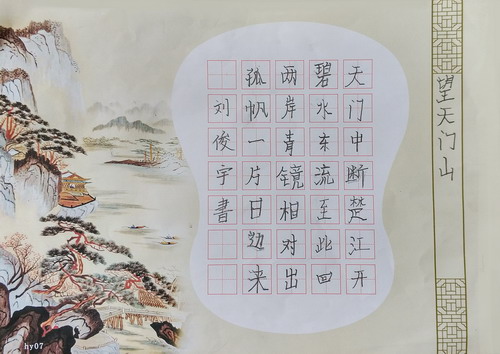 望天门山
天门中断楚江开
碧水东流至此回
两岸青镜相对出
孤帆一片日边来
刘俊宇書
hy07